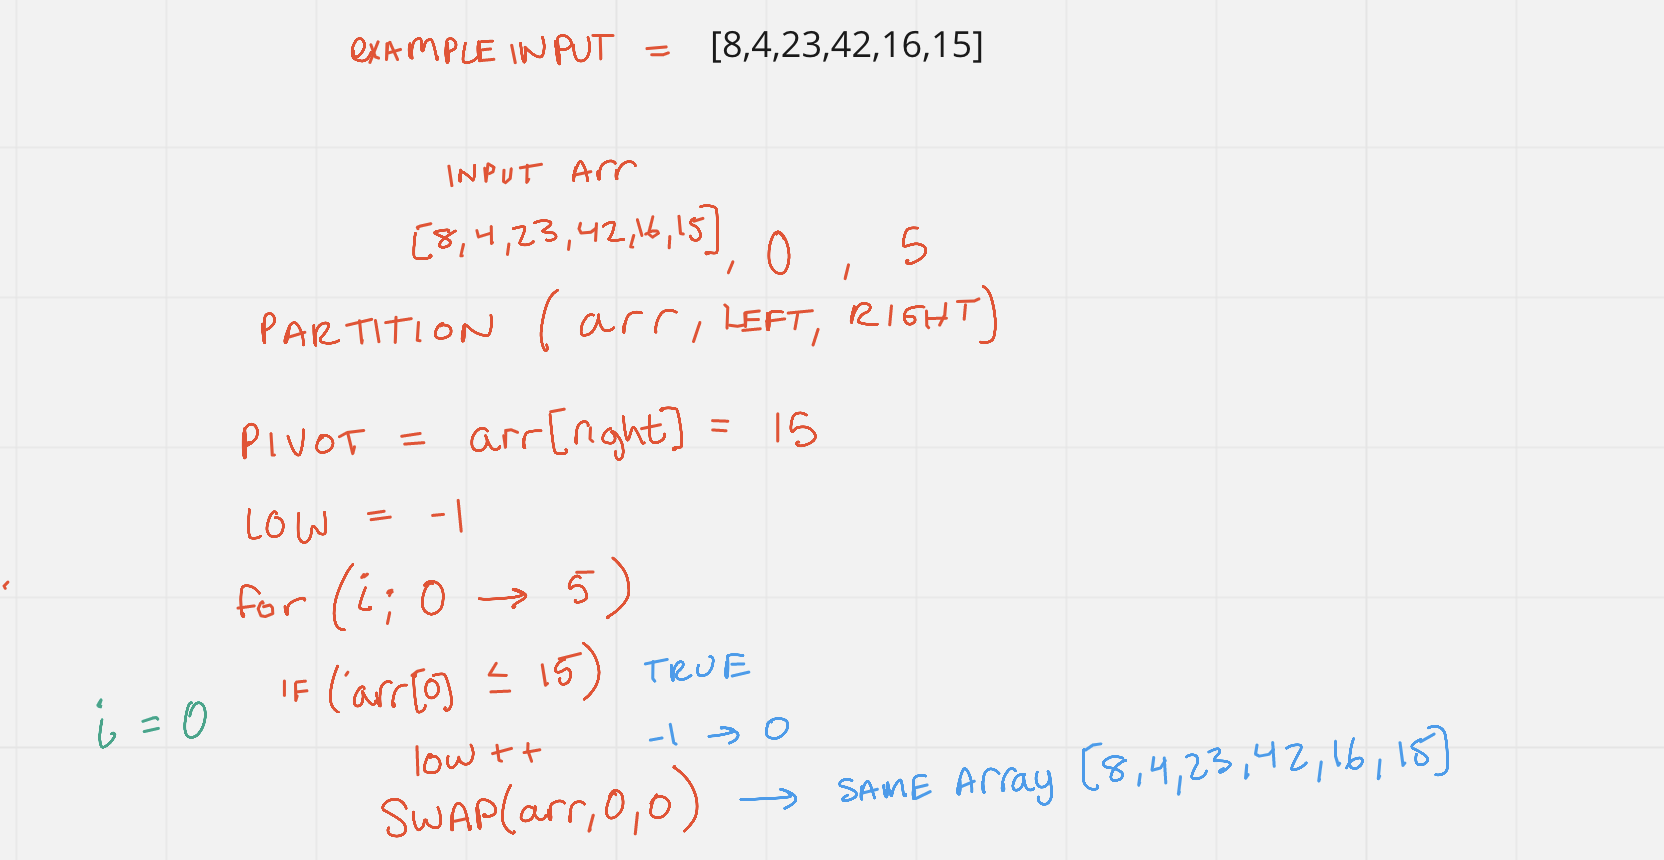 EXAMPLE INPUT = [8,4,23,42,16,15]
INPUT Arr
[8,4,23,42,16,15], 0 , 5
PARTITION (arr, LEFT, RIGHT)
PIVOT = arr[right] = 15
LOW = -1
for (i; 0 → 5)
IF (arr[0] ≤ 15) TRUE
i = 0
low ++ -1 → 0
SWAP(arr,0,0) → SAME Array [8,4,23,42,16,15]